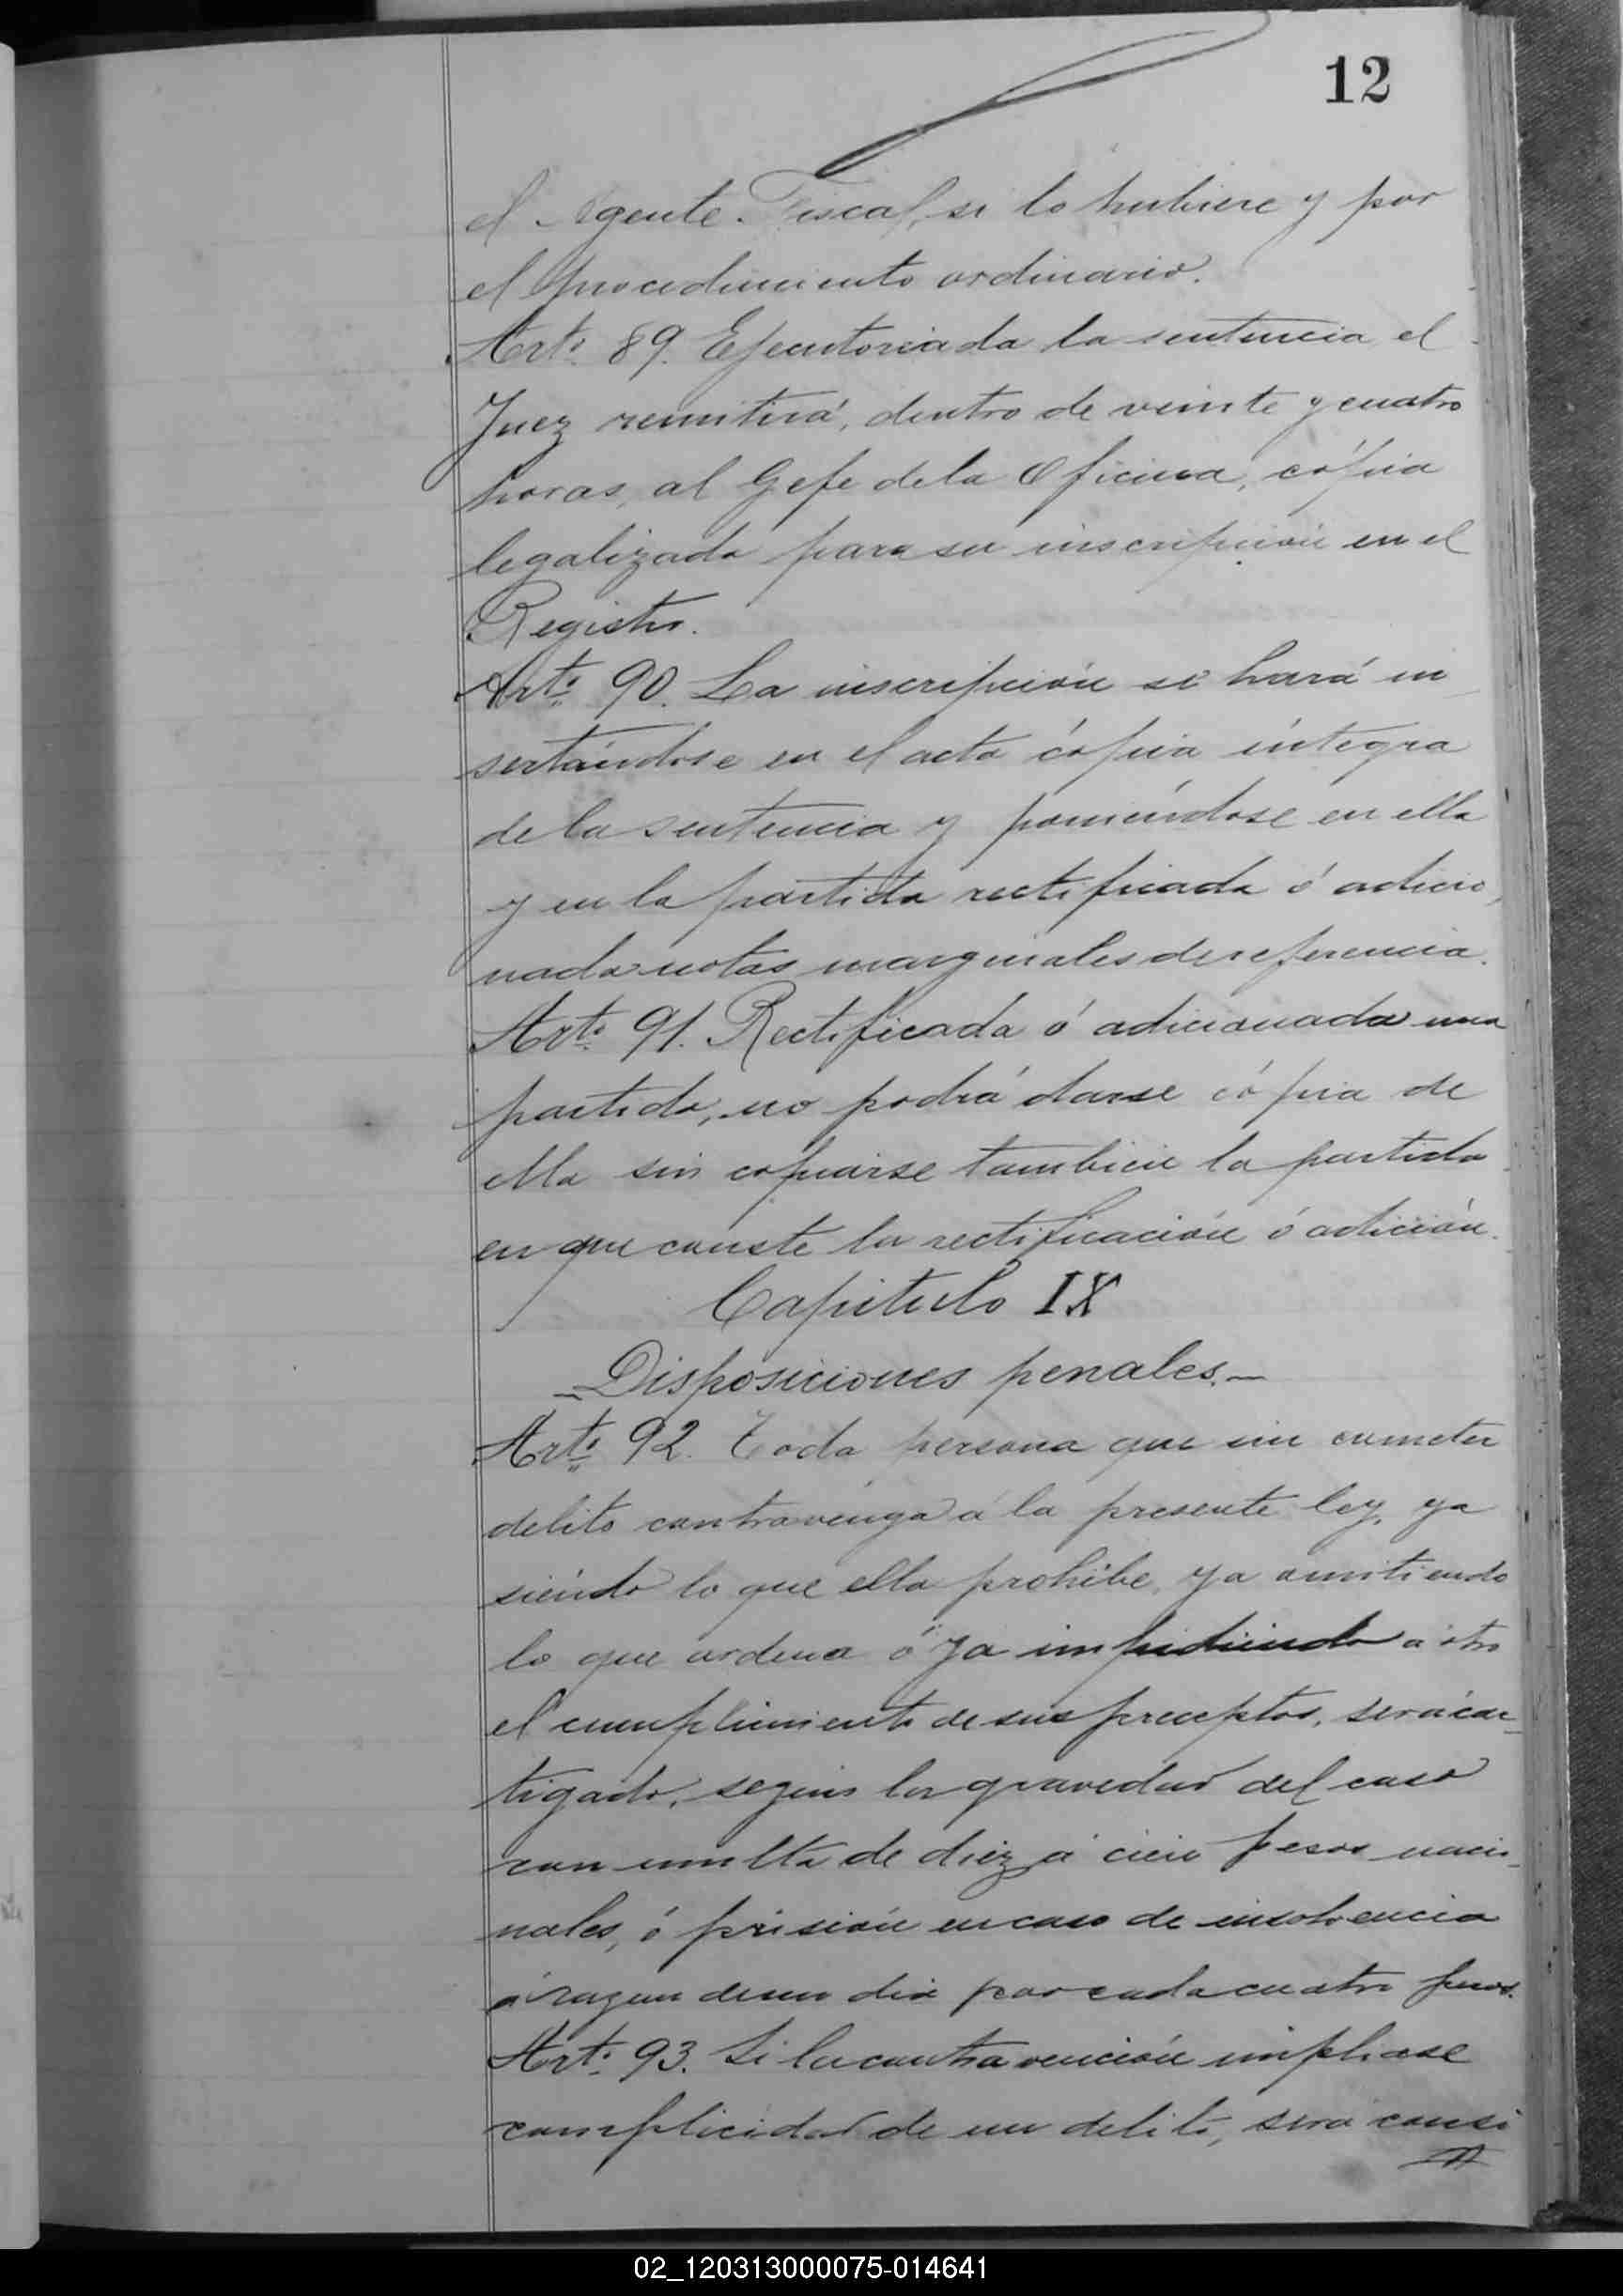 12
el Agente Fiscal, si lo hubiere y por
el procedimiento ordinario.
Arto. 89. Ejecutoriada la sentencia el
Juez remitirá, dentro de veinte y cuatro
horas, al Gefe de la Oficina, cópia
legalizada para su inscripción en el
Registro.
Arto. 90. La inscripción se hará in
sertándose en el acto cópia íntegra
de la sentencia y poniéndose en ella
y en la partida rectificada ó adicio
nada notas marginales de referencia.
Arto. 91. Rectificada ó adicionada una
partida, no podrá darse cópia de
ella sin copiarse tambien la partida
en que conste la rectificación ó adición.
Capitulo IX
Disposiciones penales.
Arto. 92. Toda persona que sin cometer
delito contravenga á la presente ley, ya
siendo lo que ella prohibe, ya omitiendo
lo que ordena ó ya impidiendo a otro
el cumplimiento de sus preceptos, será cas
tigado, segun la gravedad del caso
con multa de diez á cien pesos nacio
nales, ó prisión en caso de insolvencia
á razon de un dia por cada cuatro pesos.
Arto. 93. Si la contravención implicase
complicidad de un delito, será consi
02_120313000075-014641